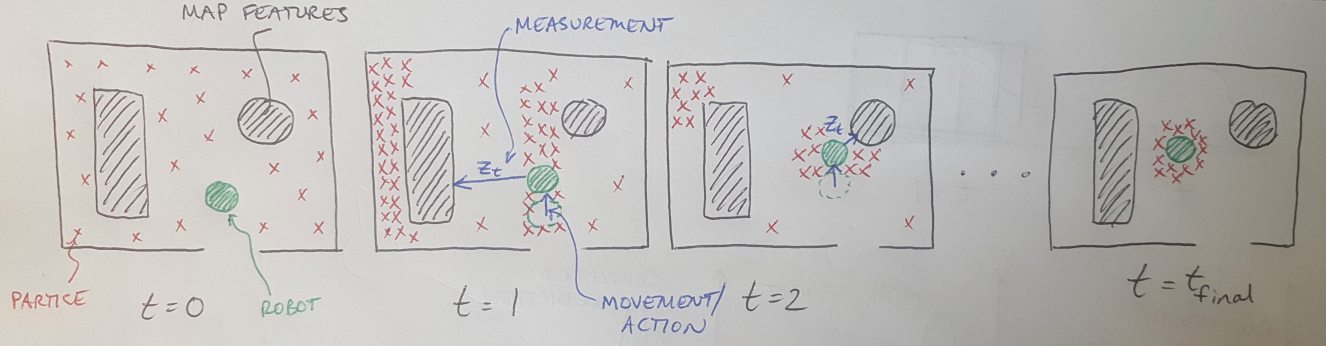 MAP FEATURES
MEASUREMENT
Zt
Zt
PARTICE
t=0
ROBOT
t=1
MOVEMENT/
ACTION
t=2
t = tfinal